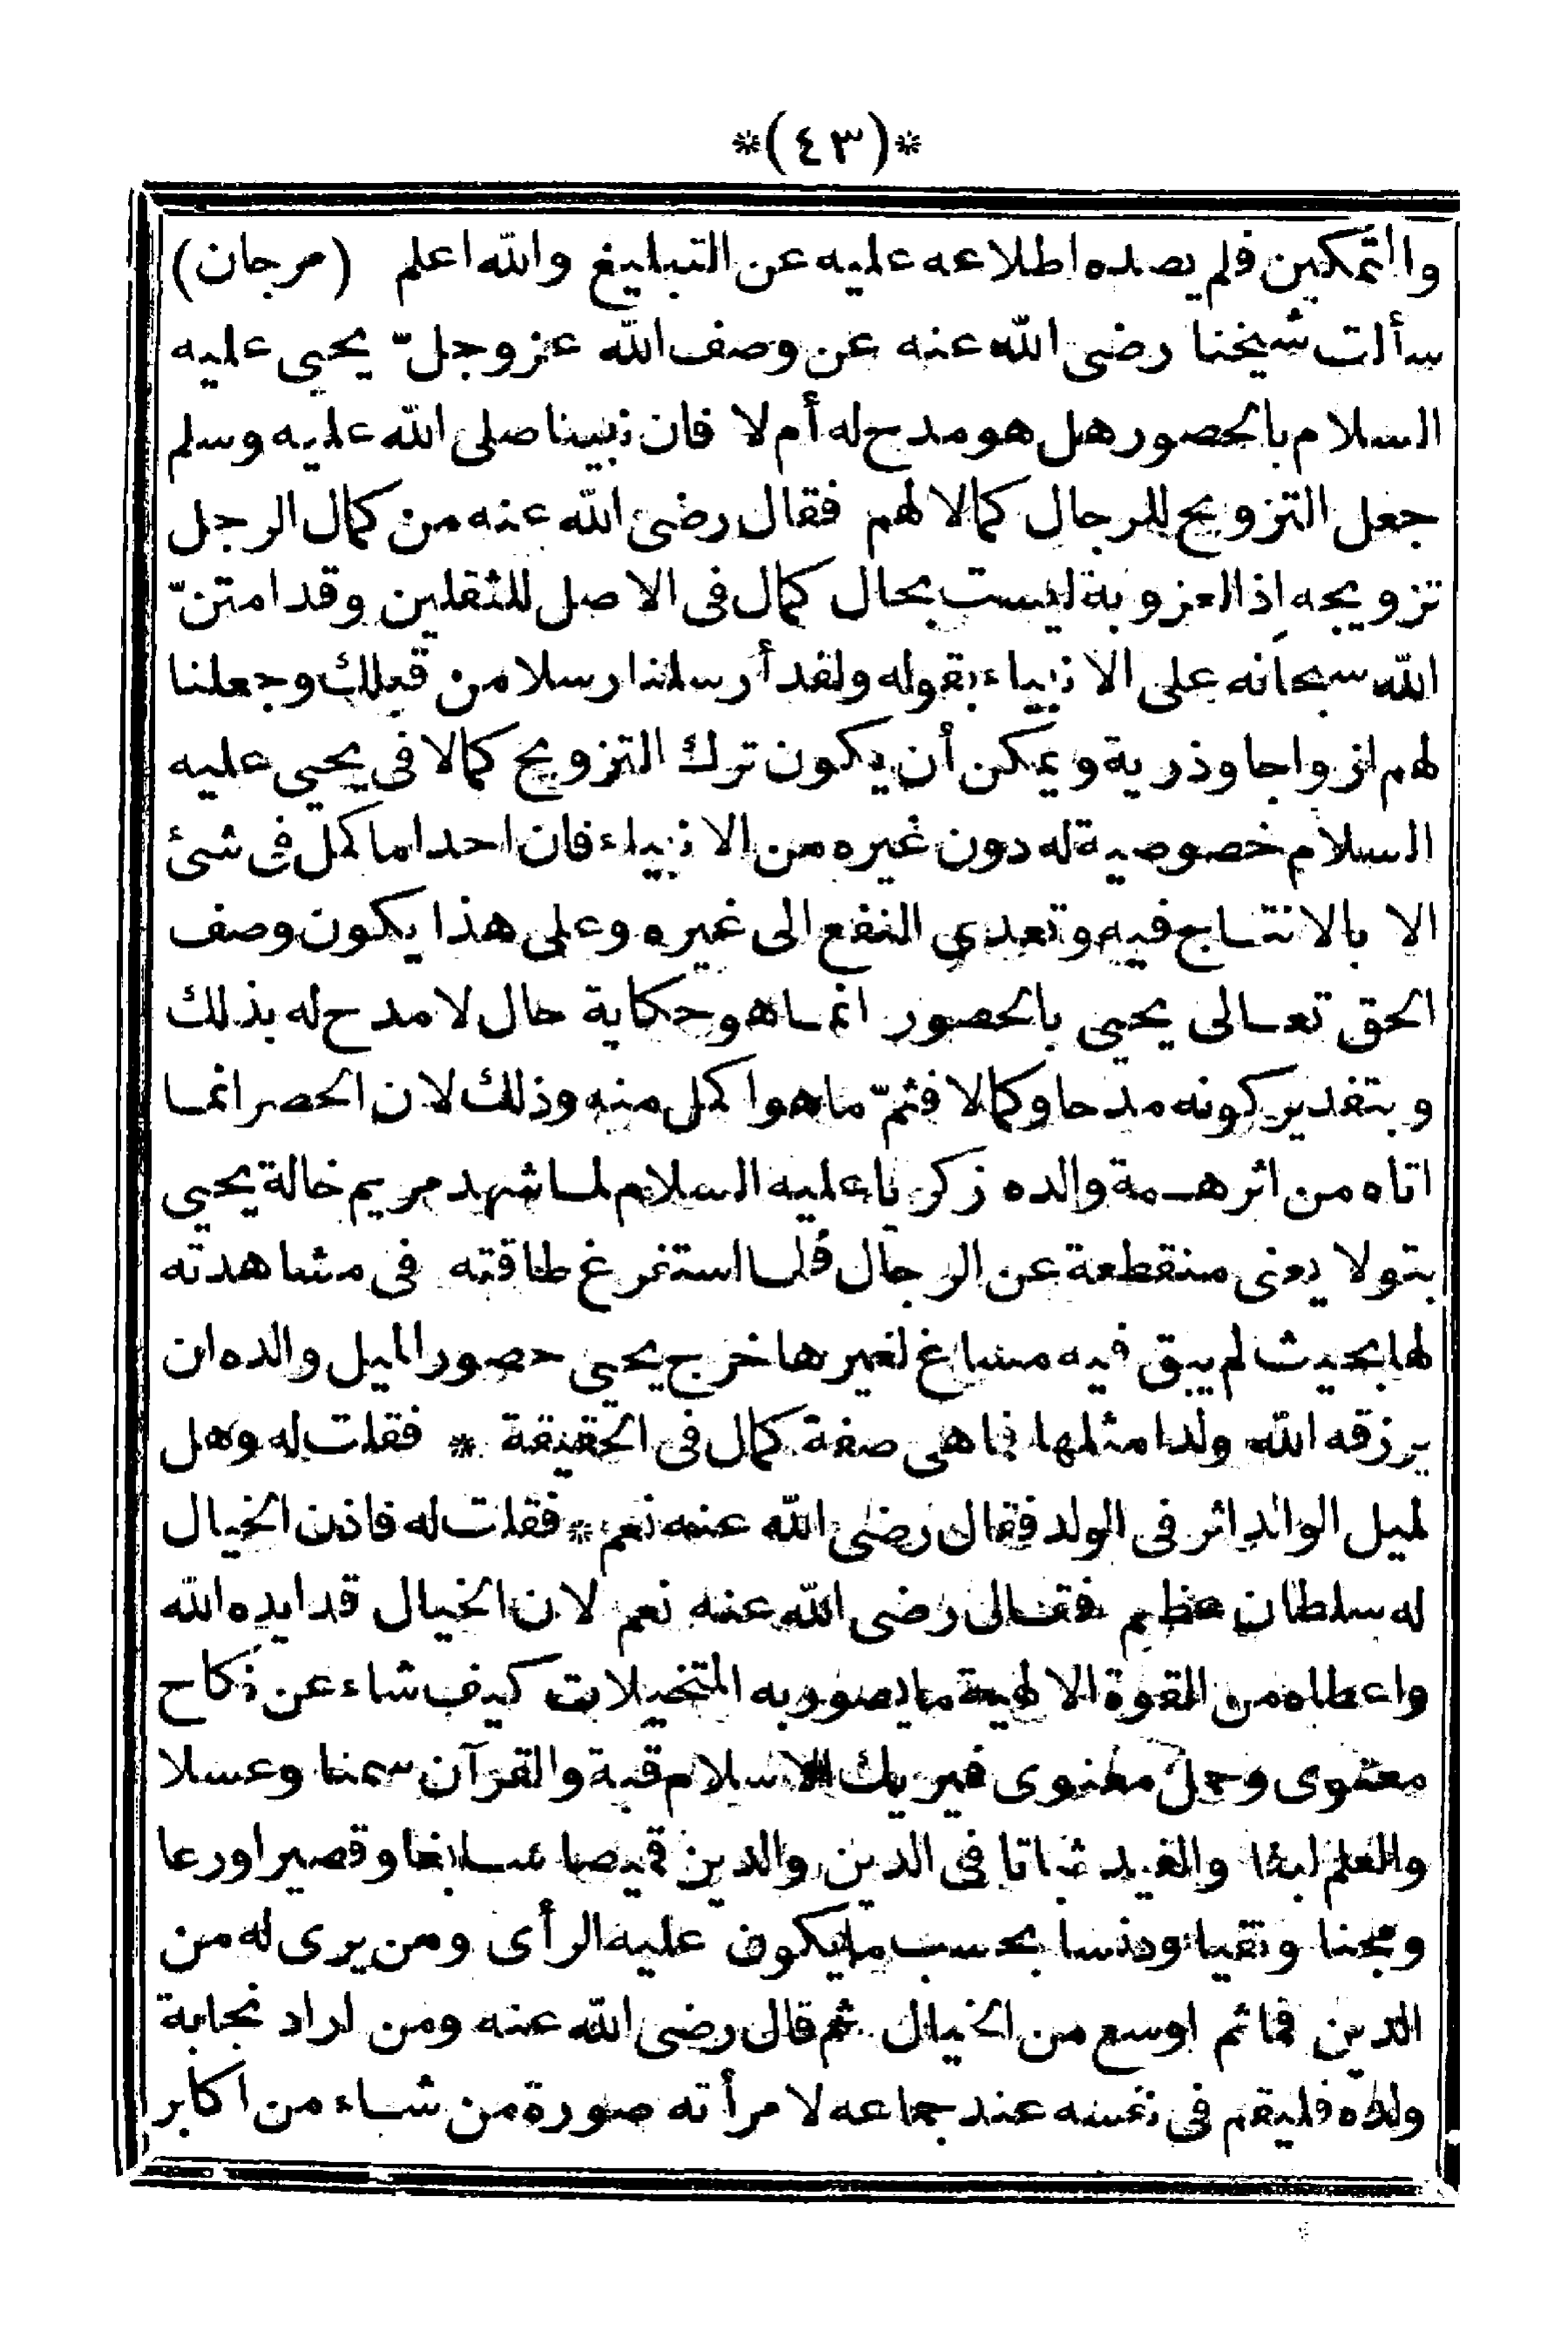 *(٤٣)*
والتمكين فلم يصده اطلاعه عليه عن التبليغ والله اعلم (مرجان)
سألت شيخنا رضى الله عنه عن وصف الله عز وجلّ يحيى عليه
السلام بالحصور هل هو مدح له أم لا فان نبينا صلى الله عليه وسلم
جعل التزويج للرجال كمالا لهم فقال رضى الله عنه من كمال الرجل
تزويجه إذ العزوبة ليست بحال كمال فى الاصل للثقلين وقد امتنّ
الله سبحانه على الانبياء بقوله ولقد أرسلنا رسلا من قبلك وجعلنا
لهم ازواجا وذرية ويمكن أن يكون ترك التزويج كمالا فى يحيى عليه
السلام خصوصية له دون غيره من الانبياء فان احدا ما كمل فى شئ
الا بالانتاج فيه وتعدي النفع الى غيره وعلى هذا يكون وصف
الحق تعالى يحيى بالحصور انما هو حكاية حال لا مدح له بذلك
وبتقدير كونه مدحا وكمالا فثمّ ما هو اكمل منه وذلك لان الحصر انما
اتاه من اثر همة والده زكريا عليه السلام لما شهد مريم خالة يحيى
بتولا يعنى منقطعة عن الرجال فلما استفرغ طاقته فى مشاهدته
لها بحيث لم يبق فيه مساغ لغيرها خرج يحيى حصورا لميل والده ان
يرزقه الله ولدا مثلها فما هى صفة كمال فى الحقيقة * فقلت له وهل
لميل الوالد اثر فى الولد فقال رضى الله عنه نعم * فقلت له فاذن الخيال
له سلطان عظيم فقال رضى الله عنه نعم لان الخيال قد ايده الله
واعطاه من القوة الالهية ما يصور به المتخيلات كيف شاء عن نكاح
معنوى وحمل معنوى فيريك الاسلام قبة والقرآن سمنا وعسلا
والعلم لبنا والقيد ثباتا فى الدين والدين قميصا سابغا وقصيرا ورعا
ومجنا ونقيا ودنسا بحسب ما يكون عليه الرأى ومن يرى له من
الدين فما ثم اوسع من الخيال ثم قال رضى الله عنه ومن اراد نجابة
ولده فليقم فى نفسه عند جماعه لامرأته صورة من شاء من اكابر